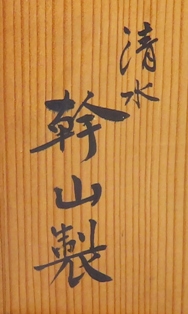 清水
幹山製